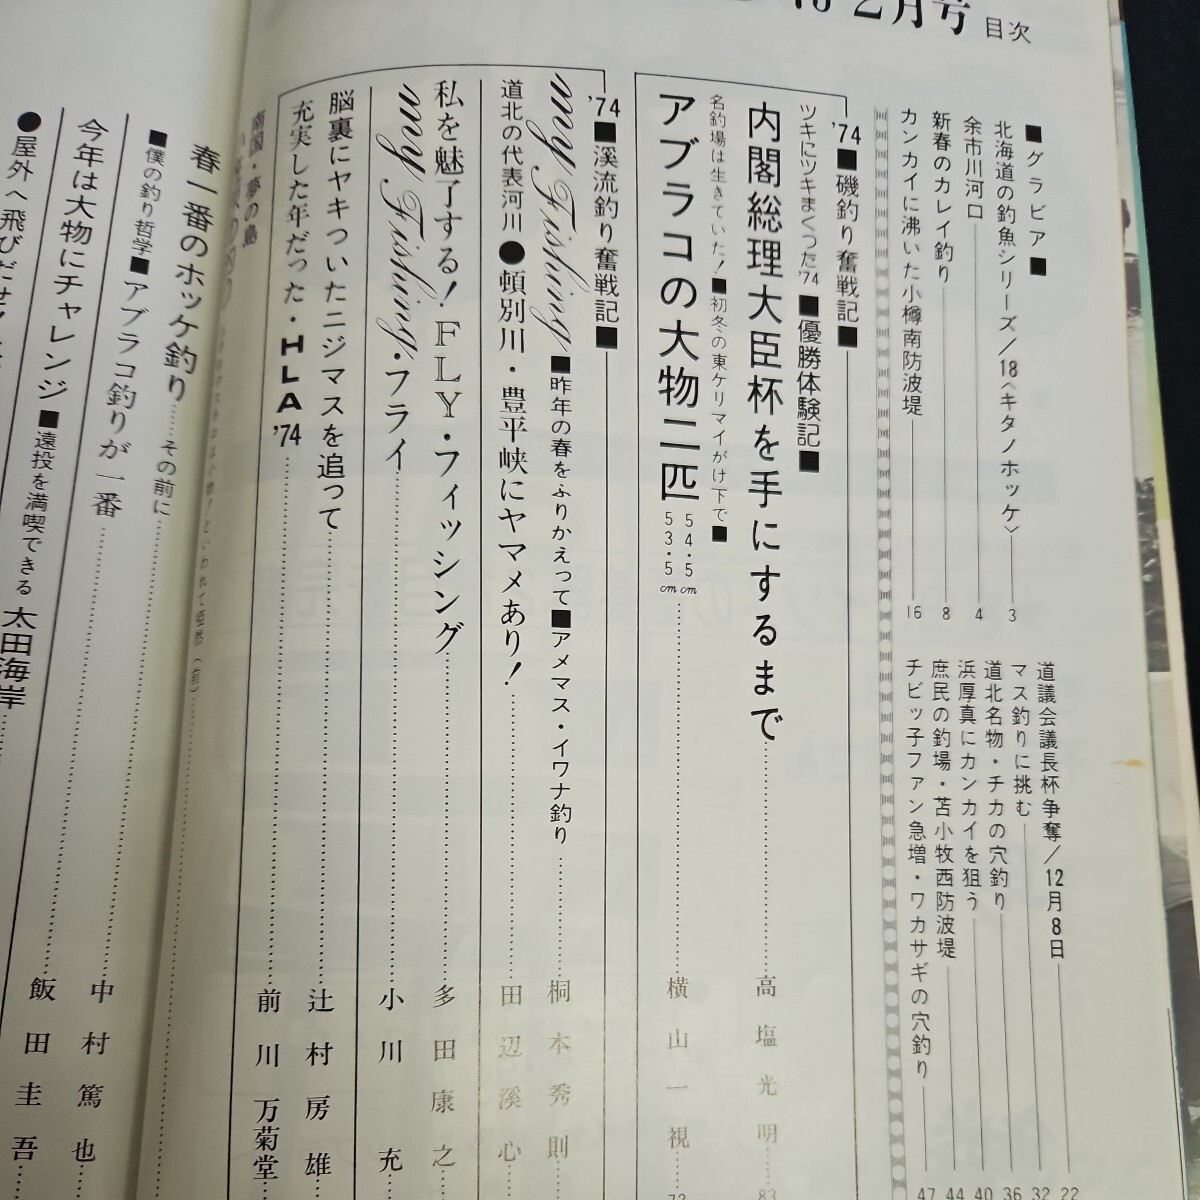 2月号 目次
■グラビア■
北海道の釣魚シリーズ/18〈キタノホッケ〉 3
余市川河口 4
新春のカレイ釣り 8
カンカイに沸いた小樽南防波堤 16
道議会議長杯争奪/12月8日 22
マス釣りに挑む 32
道北名物・チカの穴釣り 36
浜厚真にカンカイを狙う 40
庶民の釣場・苫小牧西防波堤 44
チビッ子ファン急増・ワカサギの穴釣り 47
'74■磯釣り奮戦記■
ツキにツキまくった'74■優勝体験記■
内閣総理大臣杯を手にするまで 高塩光明 83
名釣場は生きていた!■初冬の東ケリマイがけ下で■
アブラコの大物二匹 54・5cm 53・5cm 横山一視 73
'74■溪流釣り奮戦記■
my Fishing■昨年の春をふりかえって■アメマス・イワナ釣り 桐本秀則
道北の代表河川●頓別川・豊平峡にヤマメあり! 田辺溪心
私を魅了する!FLY・フィッシング 多田康之
my Fishing・フライ 小川充
脳裏にヤキついたニジマスを追って 辻村房雄
充実した年だった・HLA'74 前川万菊堂
南国・夢の島
春一番のホッケ釣り……その前に
■僕の釣り哲学■アブラコ釣りが一番 中村篤也
今年は大物にチャレンジ■遠投を満喫できる太田海岸 飯田圭吾
●屋外へ飛びだせ